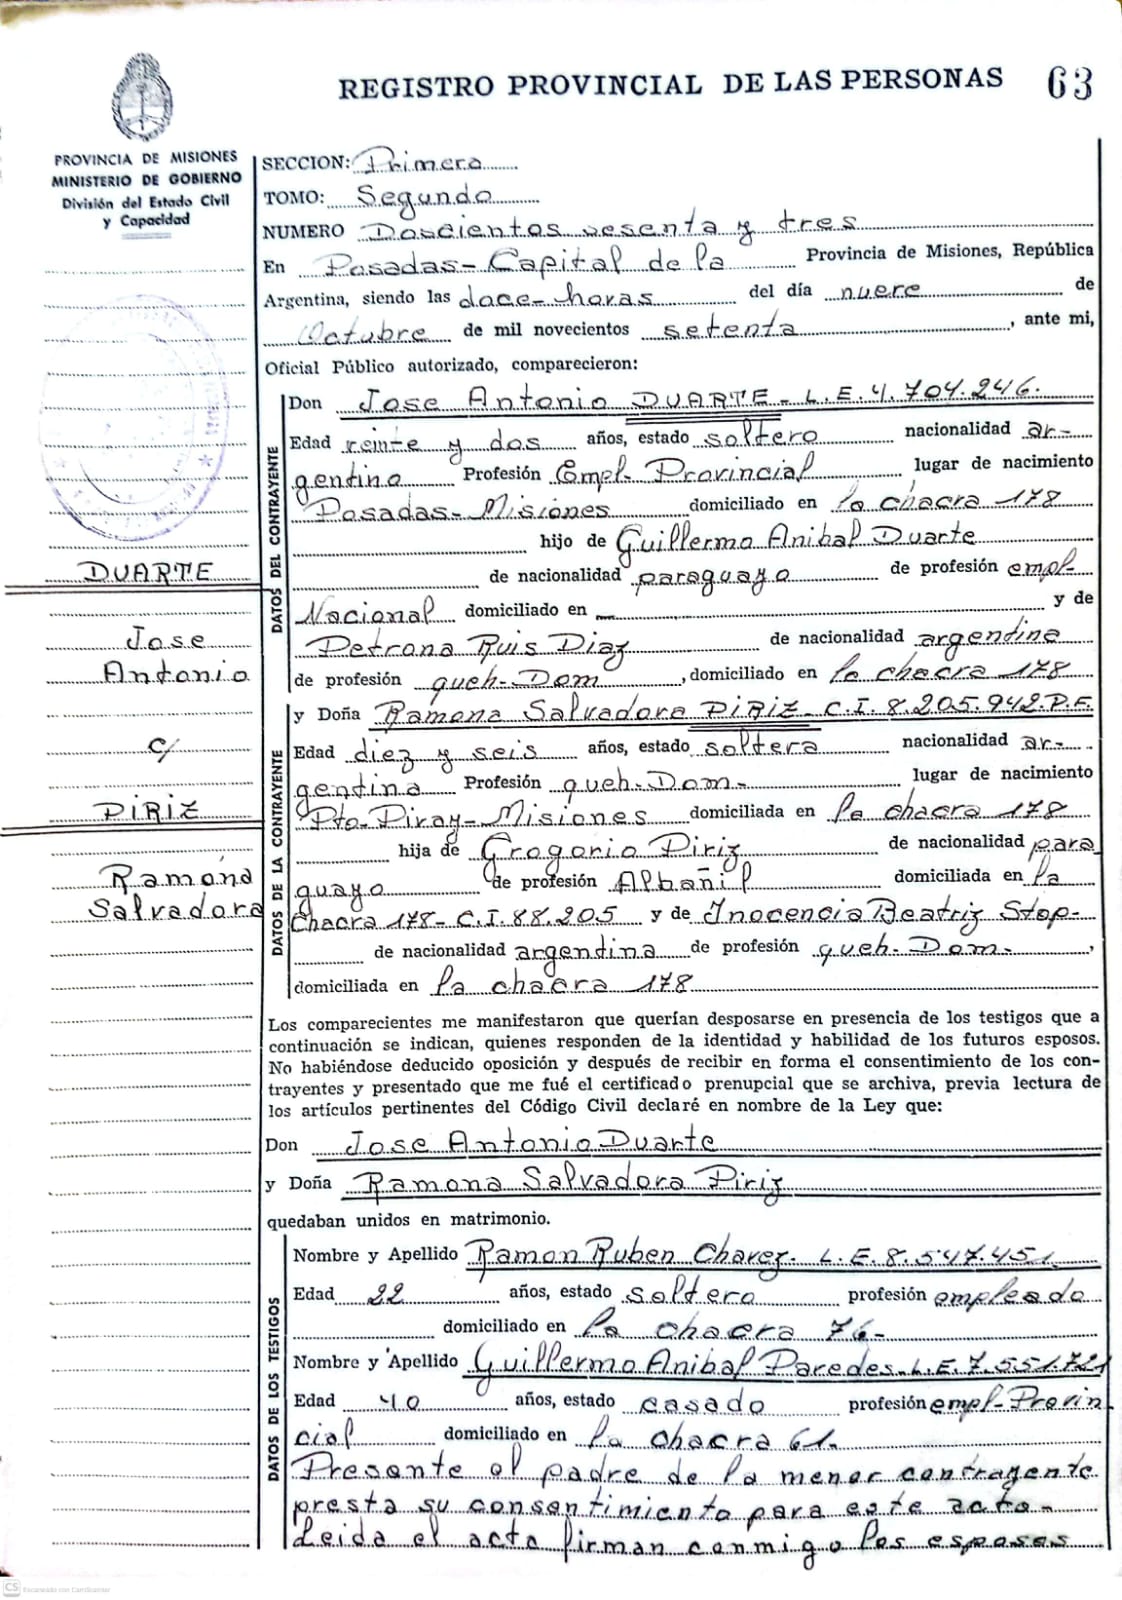 REGISTRO PROVINCIAL DE LAS PERSONAS 63
PROVINCIA DE MISIONES
MINISTERIO DE GOBIERNO
División del Estado Civil
y Capacidad
SECCION: Primera
TOMO: Segundo
NUMERO Doscientos sesenta y tres
En Posadas-Capital de la Provincia de Misiones, República
Argentina, siendo las doce-horas del día nueve de
Octubre de mil novecientos setenta, ante mi,
Oficial Público autorizado, comparecieron:
DATOS DEL CONTRAYENTE
Don Jose Antonio DUARTE- L.E.4.704.246.
Edad veinte y dos años, estado soltero nacionalidad ar-
gentino Profesión Empl- Provincial lugar de nacimiento
Posadas-Misiones domiciliado en la chacra 178
hijo de Guillermo Anibal Duarte
de nacionalidad paraguayo de profesión empl-
Nacional domiciliado en — y de
Petrona Ruis Diaz de nacionalidad argentina
de profesión queh-Dom, domiciliado en la chacra 178
DUARTE
Jose
Antonio
c/
PIRIZ
Ramona
Salvadora
DATOS DE LA CONTRAYENTE
y Doña Ramona Salvadora PIRIZ- C.I.8.205.942.P.F.
Edad diez y seis años, estado soltera nacionalidad ar-
gentina Profesión queh-Dom- lugar de nacimiento
Pto-Piray-Misiones domiciliada en la chacra 178
hija de Grogorio Piriz de nacionalidad para
guayo de profesión Albañil domiciliada en la
Chacra 178-C.I.88.205 y de Inocencia Beatriz Stop-
de nacionalidad argentina de profesión queh-Dom-,
domiciliada en la chacra 178
Los comparecientes me manifestaron que querían desposarse en presencia de los testigos que a
continuación se indican, quienes responden de la identidad y habilidad de los futuros esposos.
No habiéndose deducido oposición y después de recibir en forma el consentimiento de los con-
trayentes y presentado que me fué el certificado prenupcial que se archiva, previa lectura de
los artículos pertinentes del Código Civil declaré en nombre de la Ley que:
Don Jose Antonio Duarte
y Doña Ramona Salvadora Piriz
quedaban unidos en matrimonio.
DATOS DE LOS TESTIGOS
Nombre y Apellido Ramon Ruben Chavez- L.E.8.547.451.
Edad 22 años, estado soltero profesión empleado
domiciliado en la chacra 76-
Nombre y Apellido Guillermo Anibal Paredes-L.E.7.551.721
Edad 40 años, estado casado profesión empl-Provin
cial domiciliado en la chacra 61-
Presente el padre de la menor contrayente
presta su consentimiento para este acto-
Leida el acta firman conmigo los esposos
CS Escaneado con CamScanner